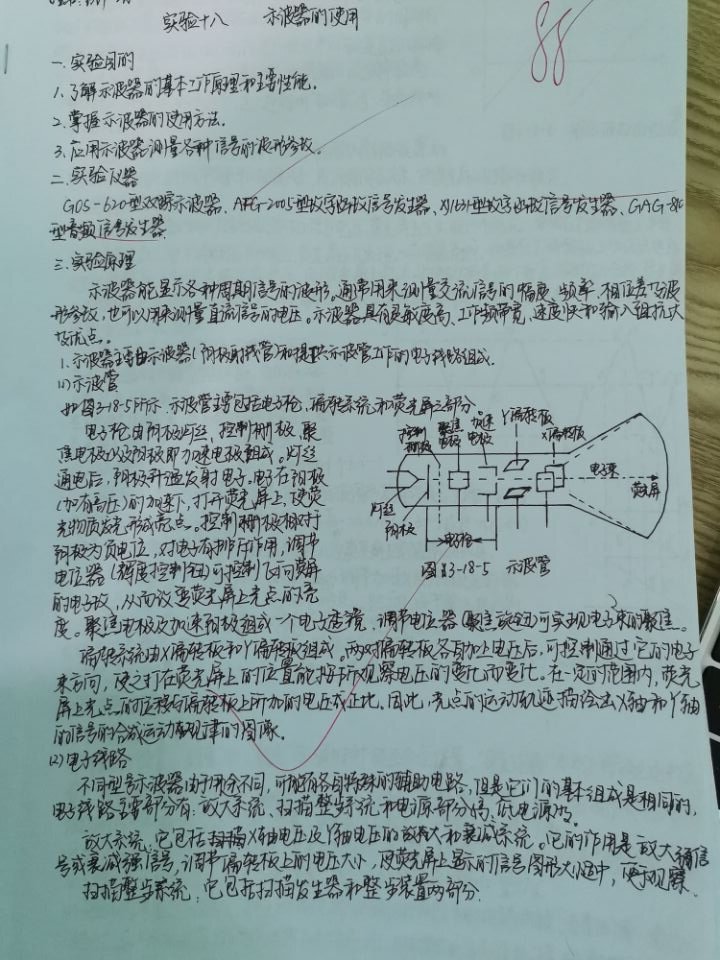 实验十八 示波器的使用
88
一.实验目的
1.了解示波器的基本工作原理和主要性能.
2.掌握示波器的使用方法.
3.应用示波器测量各种信号的波形参数.
二.实验仪器
GOS-620型双踪示波器、AFG-2005型数字函数信号发生器、型数字函数信号发生器、GAG-
型音频信号发生器
三.实验原理
示波器能显示各种周期信号的波形。通常用来测量交流信号的幅度、频率、相位差及波
形参数,也可以用来测量直流信号的电压。示波器具有灵敏度高、工作频带宽、速度快和输入阻抗大
等优点。
1.示波器主要由示波器(阴极射线管)和提供示波管工作的电子线路组成.
(1)示波管
如图3-18-5所示.示波管主要包括电子枪,偏转系统和荧光屏三部分.
电子枪由阴极灯丝,控制栅极,聚
焦电极以及阴极即加速电极组成。灯丝
通电后,阴极升温发射电子.电子在阳极
(加有高压)的加速下,打开荧光屏上,使荧
光物质发光形成亮点。控制栅极相对于
阴极为负电位,对电子有排斥作用,调节
电位器(辉度控制钮)可控制飞向荧屏
的电子数,从而改变荧光屏上光点的亮
度。聚焦电极及加速阳极组成一个电子透镜,调节电位器(聚焦旋钮)可实现电子束的聚焦。
控制栅极
聚焦电极
加速电极
Y偏转板
X偏转板
电子束
荧光屏
灯丝
阴极
电子枪
图3-18-5 示波管
偏转系统由X偏转板和Y偏转板组成。两对偏转板各自加上电压后,可控制通过它的电子
束方向,使之打在荧光屏上的位置能按所观察电压的变化而变化。在一定的范围内,荧光
屏上光点的位移与偏转板上所加的电压成正比。因此,光点的运动轨迹描绘出X轴和Y轴
的信号的合成运动规律的图像。
(2)电子线路
不同型号示波器由于用途不同,可能有各自特殊的辅助电路,但是它们的基本组成是相同的,
电子线路主要部分有:放大系统、扫描整步系统和电源部分高、低电源等。
放大系统,它包括X轴电压及Y轴电压的放大和衰减系统。它的作用是放大弱信
号或衰减强信号,调节偏转板上的电压大小,使荧光屏上显示的信号图形大小适中,便于观察.
扫描整步系统,它包括扫描发生器和整步装置两部分.